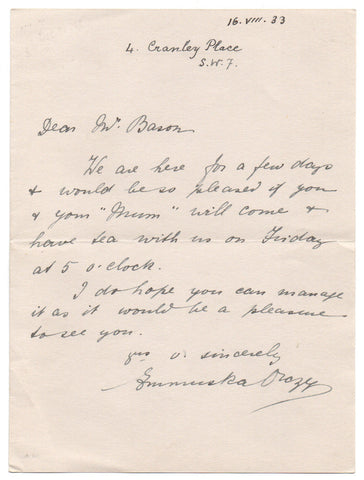 16. VIII. 33
4. Cranley Place
S.W.7.
Dear Mr. Bason
We are here for a few days
& would be so pleased if you
& your "Mum" will come &
have tea with us on Friday
at 5 o'clock.
I do hope you can manage
it as it would be a pleasure
to see you.
yrs v. sincerely
Emmuska Orczy